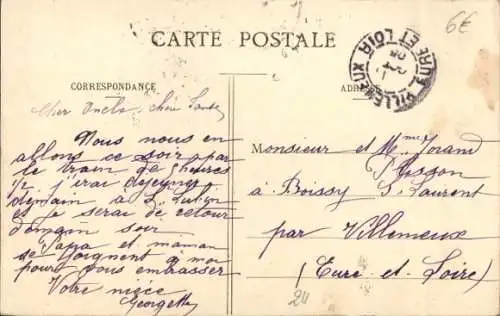 CARTE POSTALE
6€
VILLEMEUX
EURE ET LOIR
CORRESPONDANCE
Cher Oncle, chère Tante
Nous nous en
allons ce soir par
le train de heures
1/2 j'irai déjeuner
demain à
et je serai de retour
demain soir
Papa et maman
se joignent a moi
pour vous embrasser
Votre nièce
Georgette
Monsieur et Mme
à Boissy S. Laurent
par Villemeux
(Eure-et-Loire)
24